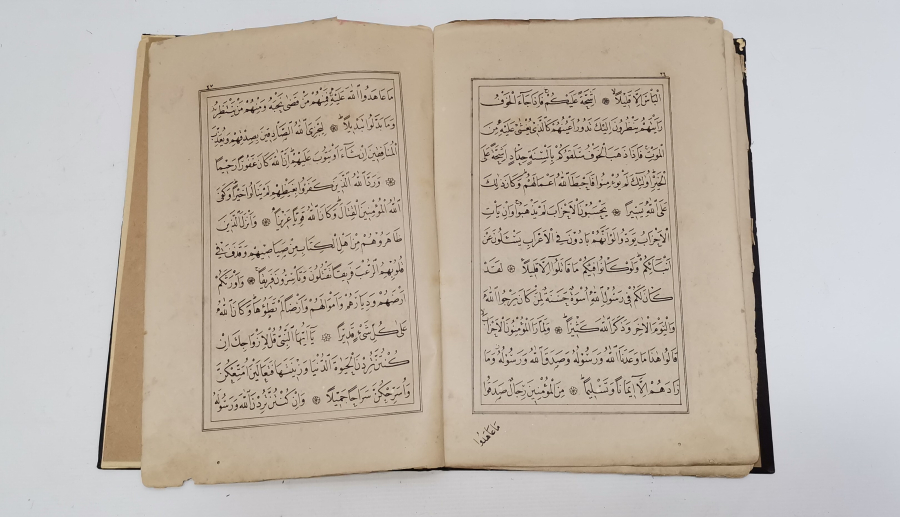 ٢٦
الْبَأْسَ اِلَّا قَلِيلاً ۞ اَشِحَّةً عَلَيْكُمْ فَاِذَا جَاءَ الْخَوْفُ
رَاَيْتَهُمْ يَنْظُرُونَ اِلَيْكَ تَدُورُ اَعْيُنُهُمْ كَالَّذِي يُغْشٰى عَلَيْهِ مِنَ
الْمَوْتِ فَاِذَا ذَهَبَ الْخَوْفُ سَلَقُوكُمْ بِاَلْسِنَةٍ حِدَادٍ اَشِحَّةً عَلَى
الْخَيْرِ اُولٰئِكَ لَمْ يُؤْمِنُوا فَاَحْبَطَ اللّٰهُ اَعْمَالَهُمْ وَكَانَ ذٰلِكَ
عَلَى اللّٰهِ يَسِيراً ۞ يَحْسَبُونَ الْاَحْزَابَ لَمْ يَذْهَبُوا وَاِنْ يَأْتِ
الْاَحْزَابُ يَوَدُّوا لَوْ اَنَّهُمْ بَادُونَ فِي الْاَعْرَابِ يَسْئَلُونَ عَنْ
اَنْبَائِكُمْ وَلَوْ كَانُوا فِيكُمْ مَا قَاتَلُوا اِلَّا قَلِيلاً ۞ لَقَدْ
كَانَ لَكُمْ فِي رَسُولِ اللّٰهِ اُسْوَةٌ حَسَنَةٌ لِمَنْ كَانَ يَرْجُوا اللّٰهَ
وَالْيَوْمَ الْاٰخِرَ وَذَكَرَ اللّٰهَ كَثِيراً ۞ وَلَمَّا رَاَ الْمُؤْمِنُونَ الْاَحْزَابَ
قَالُوا هٰذَا مَا وَعَدَنَا اللّٰهُ وَرَسُولُهُ وَصَدَقَ اللّٰهُ وَرَسُولُهُ وَمَا
زَادَهُمْ اِلَّا اِيمَاناً وَتَسْلِيماً ۞ مِنَ الْمُؤْمِنِينَ رِجَالٌ صَدَقُوا
مَا عَاهَدُوا
مَا عَاهَدُوا اللّٰهَ عَلَيْهِ فَمِنْهُمْ مَنْ قَضٰى نَحْبَهُ وَمِنْهُمْ مَنْ يَنْتَظِرُ
وَمَا بَدَّلُوا تَبْدِيلاً ۞ لِيَجْزِيَ اللّٰهُ الصَّادِقِينَ بِصِدْقِهِمْ وَيُعَذِّبَ
الْمُنَافِقِينَ اِنْ شَاءَ اَوْ يَتُوبَ عَلَيْهِمْ اِنَّ اللّٰهَ كَانَ غَفُوراً رَحِيماً
۞ وَرَدَّ اللّٰهُ الَّذِينَ كَفَرُوا بِغَيْظِهِمْ لَمْ يَنَالُوا خَيْراً وَكَفَى
اللّٰهُ الْمُؤْمِنِينَ الْقِتَالَ وَكَانَ اللّٰهُ قَوِيّاً عَزِيزاً ۞ وَاَنْزَلَ الَّذِينَ
ظَاهَرُوهُمْ مِنْ اَهْلِ الْكِتَابِ مِنْ صَيَاصِيهِمْ وَقَذَفَ فِي
قُلُوبِهِمُ الرُّعْبَ فَرِيقاً تَقْتُلُونَ وَتَأْسِرُونَ فَرِيقاً ۞ وَاَوْرَثَكُمْ
اَرْضَهُمْ وَدِيَارَهُمْ وَاَمْوَالَهُمْ وَاَرْضاً لَمْ تَطَؤُهَا وَكَانَ اللّٰهُ
عَلٰى كُلِّ شَيْءٍ قَدِيراً ۞ يَا اَيُّهَا النَّبِيُّ قُلْ لِاَزْوَاجِكَ اِنْ
كُنْتُنَّ تُرِدْنَ الْحَيٰوةَ الدُّنْيَا وَزِينَتَهَا فَتَعَالَيْنَ اُمَتِّعْكُنَّ
وَاُسَرِّحْكُنَّ سَرَاحاً جَمِيلاً ۞ وَاِنْ كُنْتُنَّ تُرِدْنَ اللّٰهَ وَرَسُولَهُ